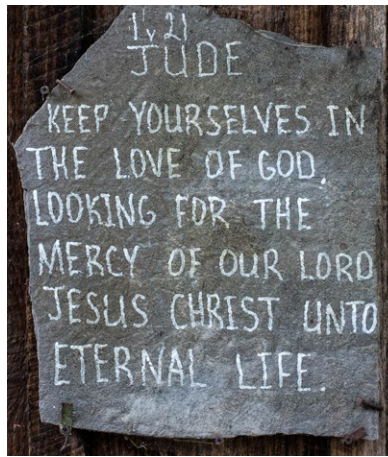 1 v 21
JUDE
KEEP YOURSELVES IN
THE LOVE OF GOD.
LOOKING FOR THE
MERCY OF OUR LORD
JESUS CHRIST UNTO
ETERNAL LIFE.